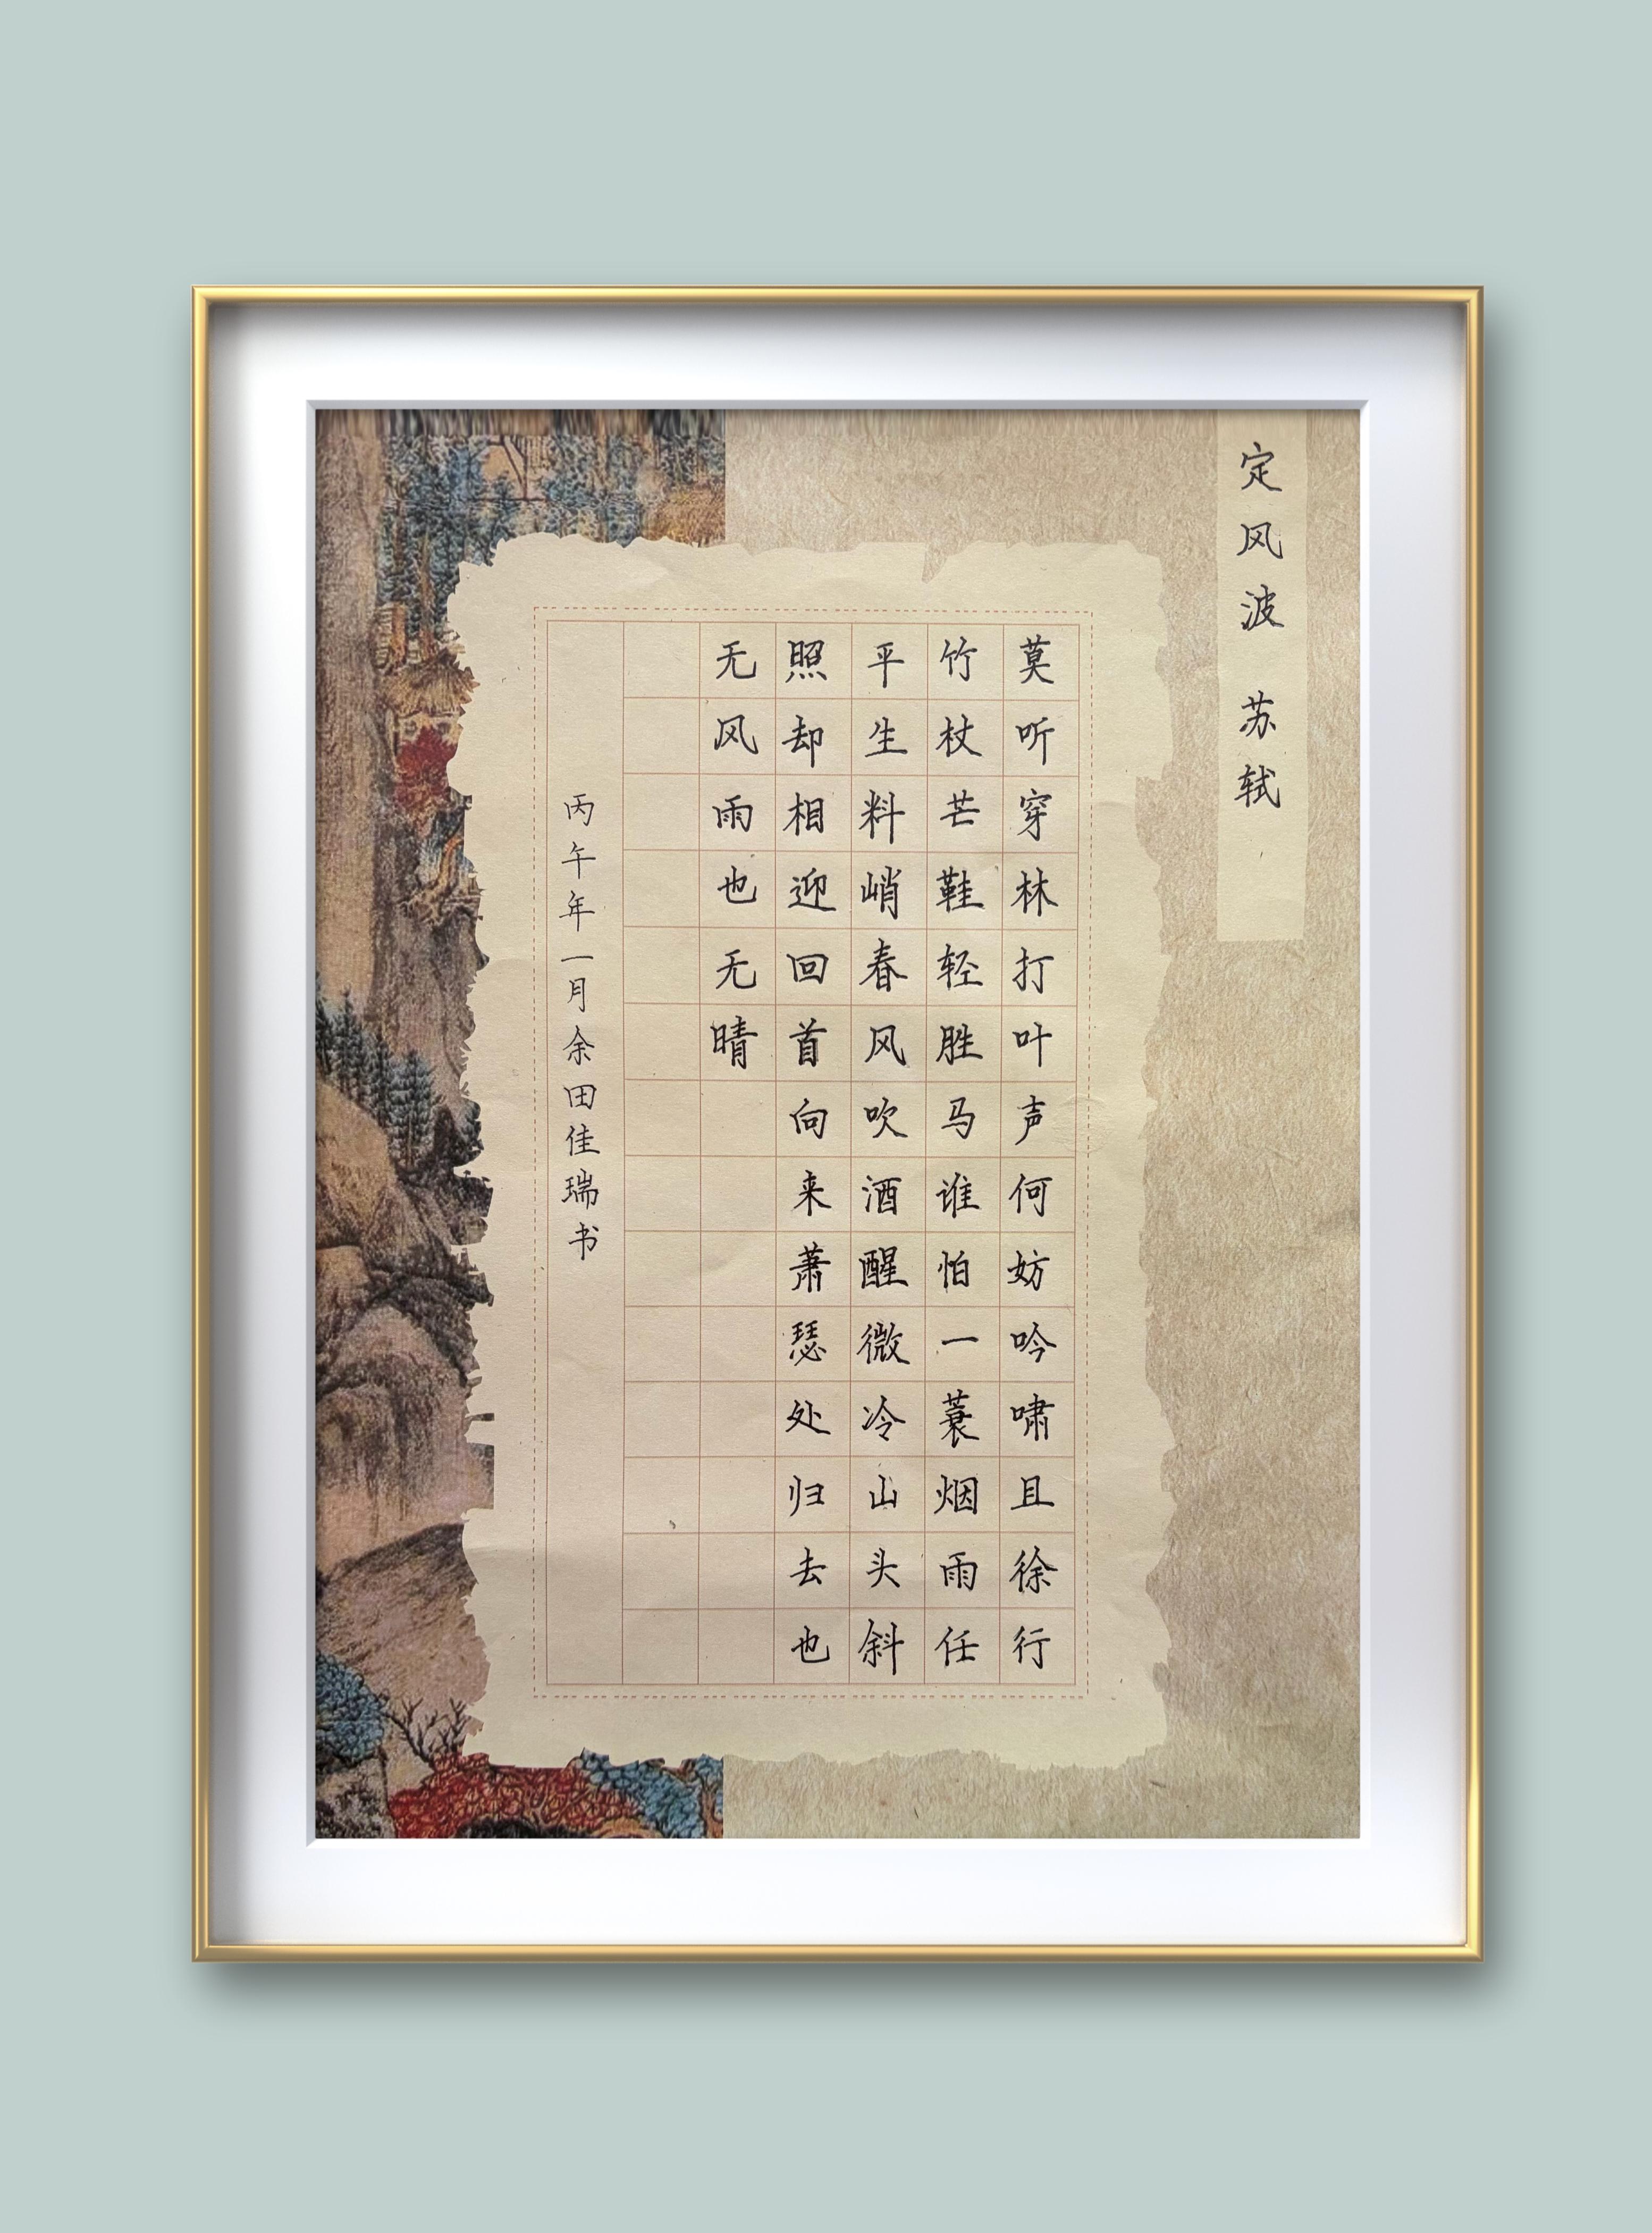 定风波 苏轼
莫听穿林打叶声何妨吟啸且徐行
竹杖芒鞋轻胜马谁怕一蓑烟雨任
平生料峭春风吹酒醒微冷山头斜
照却相迎回首向来萧瑟处归去也
无风雨也无晴
丙午年一月余田佳瑞书